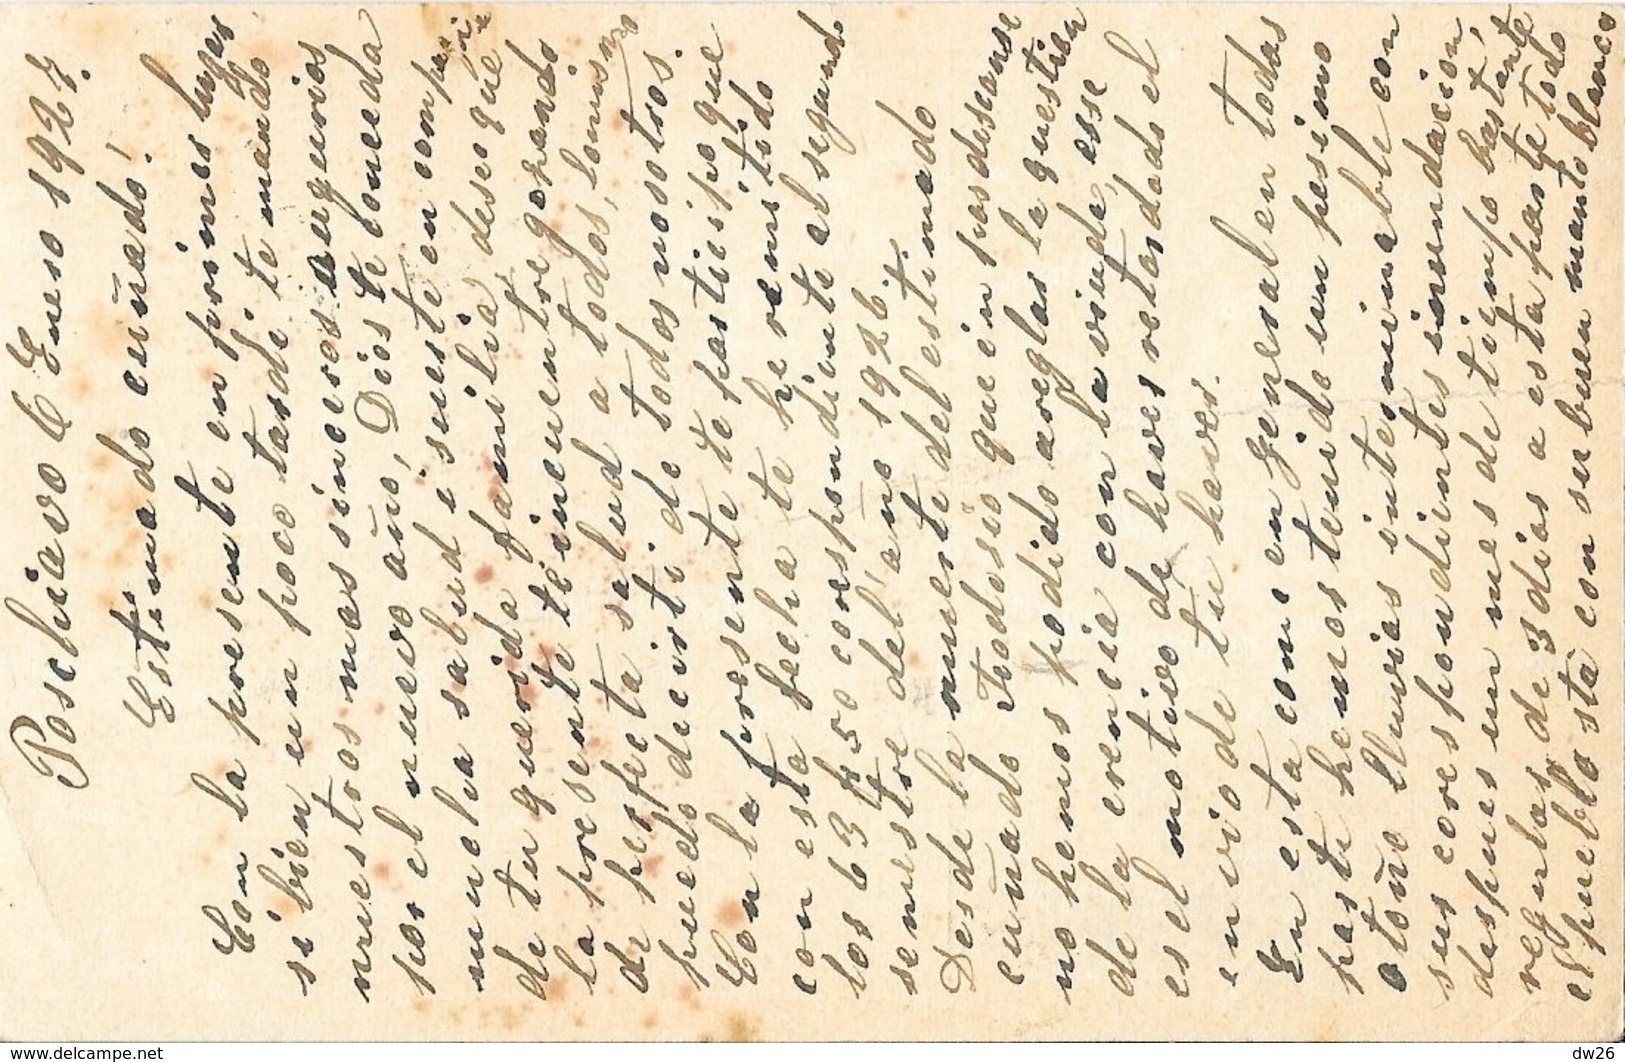 Poschiavo 6 Enero 1927.
Estimado cuñado!
Con la presente en primes lugar,
si bien un poco tarde te mando
nuestros mas sinceros augurios
por el nuevo año, Dios te conceda
mucha salud i suerte en compa
de tu querida familia, deseo que
la presente te incuentre gozando
de perfeta salud a todos, lo mismo
puedo decirti de todos nosotros.
Con la presente te participo que
con esta fecha te he remitido
los 63 frs 50 corespondiente al segundo
semestre del'año 1926.
Desde la muerte del estimado
cuñado Tiodosio que en pas descanse
no hemos podido areglar la questien
de la erencia con la viuda, esse
es el motivo de haver retardado el
envio de tu haver.
En esta como en general en todas
parte hemos tenido un pesimo
otoño lluvias inteminable con
sus corespondientes inoundacion,
despues un mes de tiempo bastante
regular, de 3 dias a esta parte todo
el pueblo sta con su buen manto blanco
www.delcampe.net
dw26